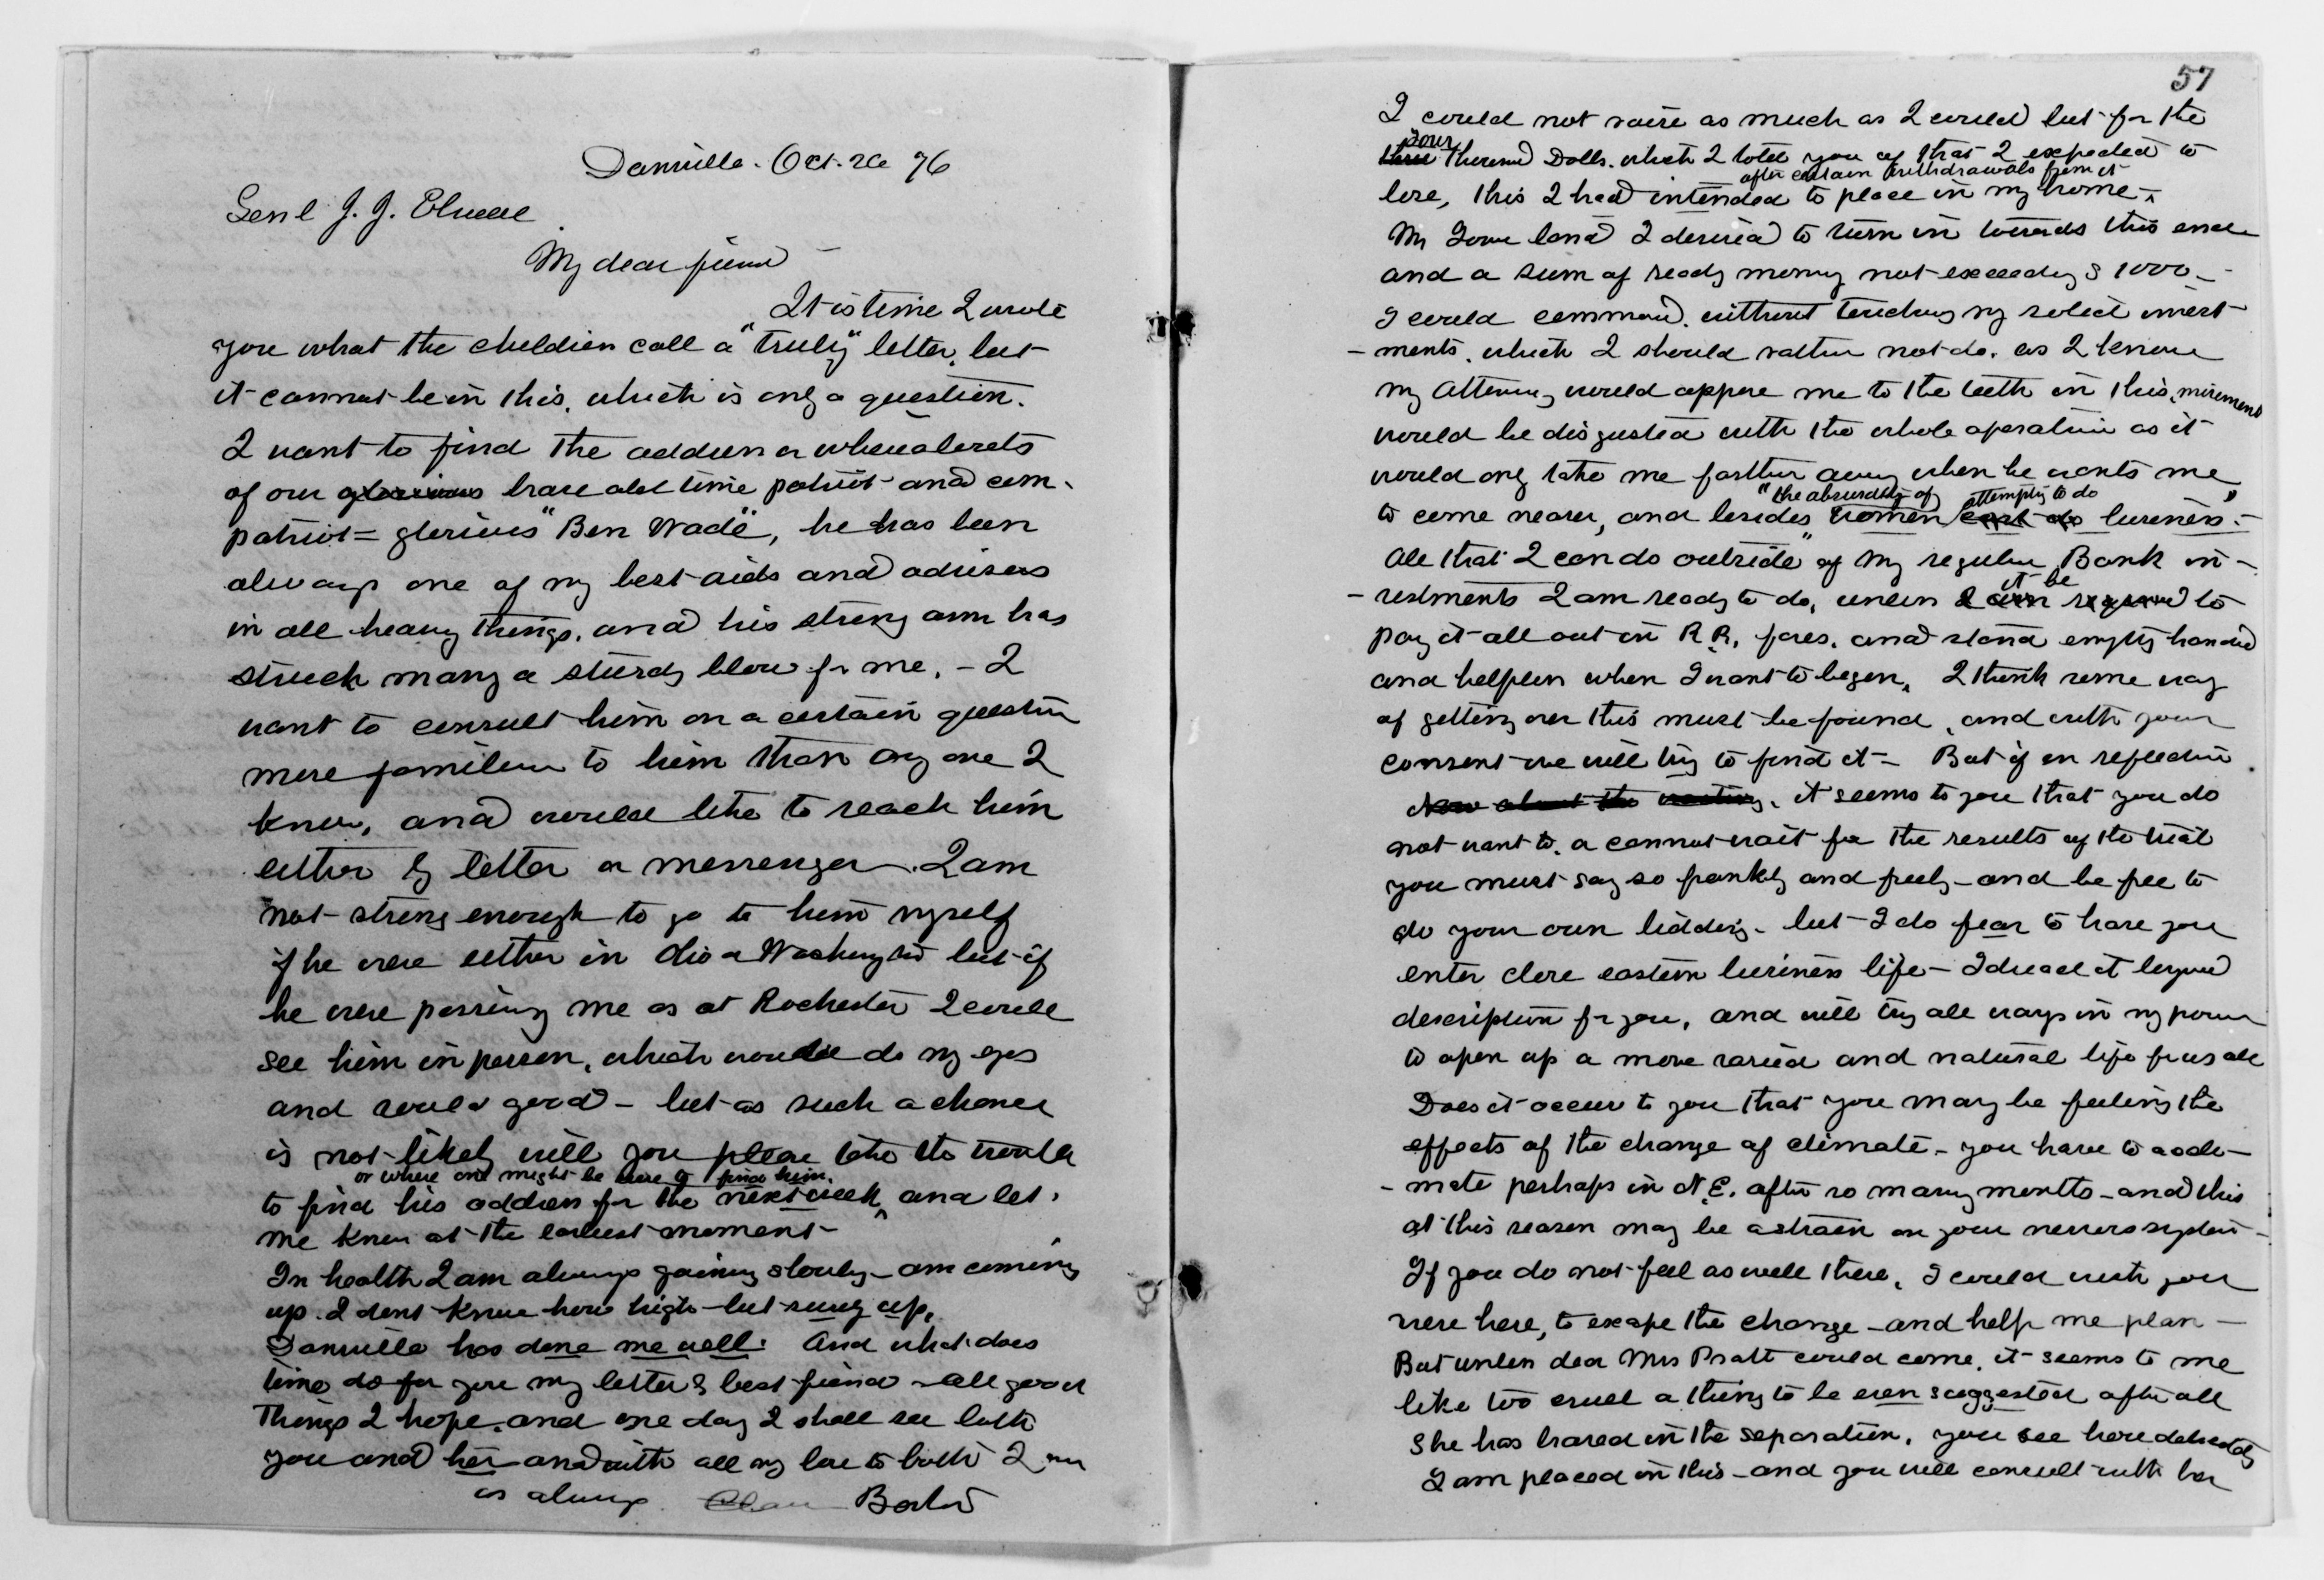 Dansville. Oct. 26 76
Genl J. J. Elwell
My dear friend –
It is time I wrote
you what the children call a "truly" letter, but
it cannot be in this, which is only a question.
I want to find the address or whereabouts
of our glorious brave old time patriot and com-
patriot = glorious "Ben Wade", he has been
always one of my best aids and advisers
in all heavy things, and his strong arm has
struck many a sturdy blow for me. – I
want to consult him on a certain question
more familiar to him than any one I
know, and would like to reach him
either by letter or messenger. I am
not strong enough to go to him myself
if he were either in Ohio or Washington but if
he were passing me as at Rochester I could
see him in person, which would do my eyes
and soul good – but as such a chance
is not likely will you please take the trouble
or where one might be sure to find him.
to find his address for the next week, and let
me know at the earliest moment –
In health I am always gaining slowly – am coming
up. I dont know how high – but surely up.
Dansville has done me well. And what does
time do for you my letter & best friend – all good
Things I hope. and one day I shall see both
you and her and with all my love to both I am
as always Clara Barton
57
I could not raise as much as I could but for the
four
three Thousand Dolls. which I told you of that I expected to
after certain withdrawals from it
lose, this I had intended to place in my home ^
My Iowa land I desired to turn in towards this end
and a sum of ready money not exceeding $ 1000 –
I could command. without touching my solid invest-
– ments. which I should rather not do. as I know
my Attorney would oppose me to the teeth in this,
would be disgusted with the whole operation as it
would only take me farther away when he wants me
"the absurdity of attempting to do
to come nearer, and besides women cant do business. –
All that I can do outside of my regular Bank in-
it be
– vestments I am ready to do, unless I am required to
pay it all out in R.R. fares. and stand empty handed
and helpless when I want to begin. I think some way
of getting over this must be found, and with your
consent we will try to find it – But if on reflection
Now about the waiting. it seems to you that you do
not want to. or cannot wait for the results of the trial
you must say so frankly and freely – and be free to
do your own bidding – but I do fear to have you
enter close eastern business life – I dread it beyond
description for you, and will try all ways in my power
to open up a more varied and natural life for us all
Does it occur to you that you may be feeling the
effects of the change of climate – you have to accli-
– mate perhaps in N.E. after so many months – and this
at this season may be a strain on your nervous system –
If you do not feel as well there, I could wish you
were here, to escape the change – and help me plan –
But unless dear Mrs Pratt could come, it seems to me
like too cruel a thing to be even suggested after all
She has braved in the separation. you see how delicately
I am placed in this – and you will consult with her